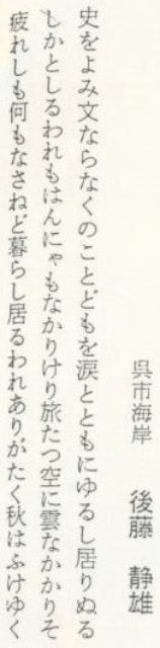 呉市海岸　後藤　静雄
史をよみ文ならなくのことどもを涙とともにゆるし居りぬる
しかとしるわれもはんにゃもなかりけり旅たつ空に雲なかかりそ
疲れしも何もなさねど暮らし居るわれありがたく秋はふけゆく